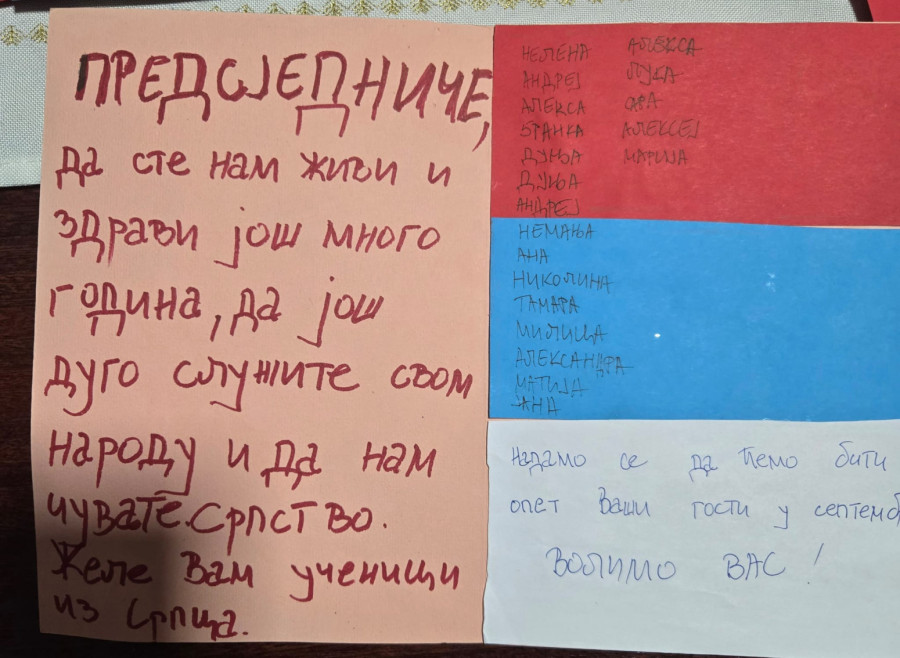 ПРЕДСЈЕДНИЧЕ,
да сте нам живи и
здрави још много
година, да још
дуго служите свом
народу и да нам
чувате Српство.
Желе Вам ученици
из Српца.
НЕЛЕНА
АНДРЕЈ
АЛЕКСА
СТАНКА
ДУЊА
ДУЊА
АНДРЕЈ
АЛЕКСА
ЛУКА
САРА
АЛЕКСЕЈ
МАРИЈА
НЕМАЊА
АНА
НИКОЛИНА
ТАМАРА
МИЛИЦА
АЛЕКСАНДРА
МАТИЈА
ЈАНА
Надамо се да ћемо бити
опет Ваши гости у септемб
ВОЛИМО ВАС!